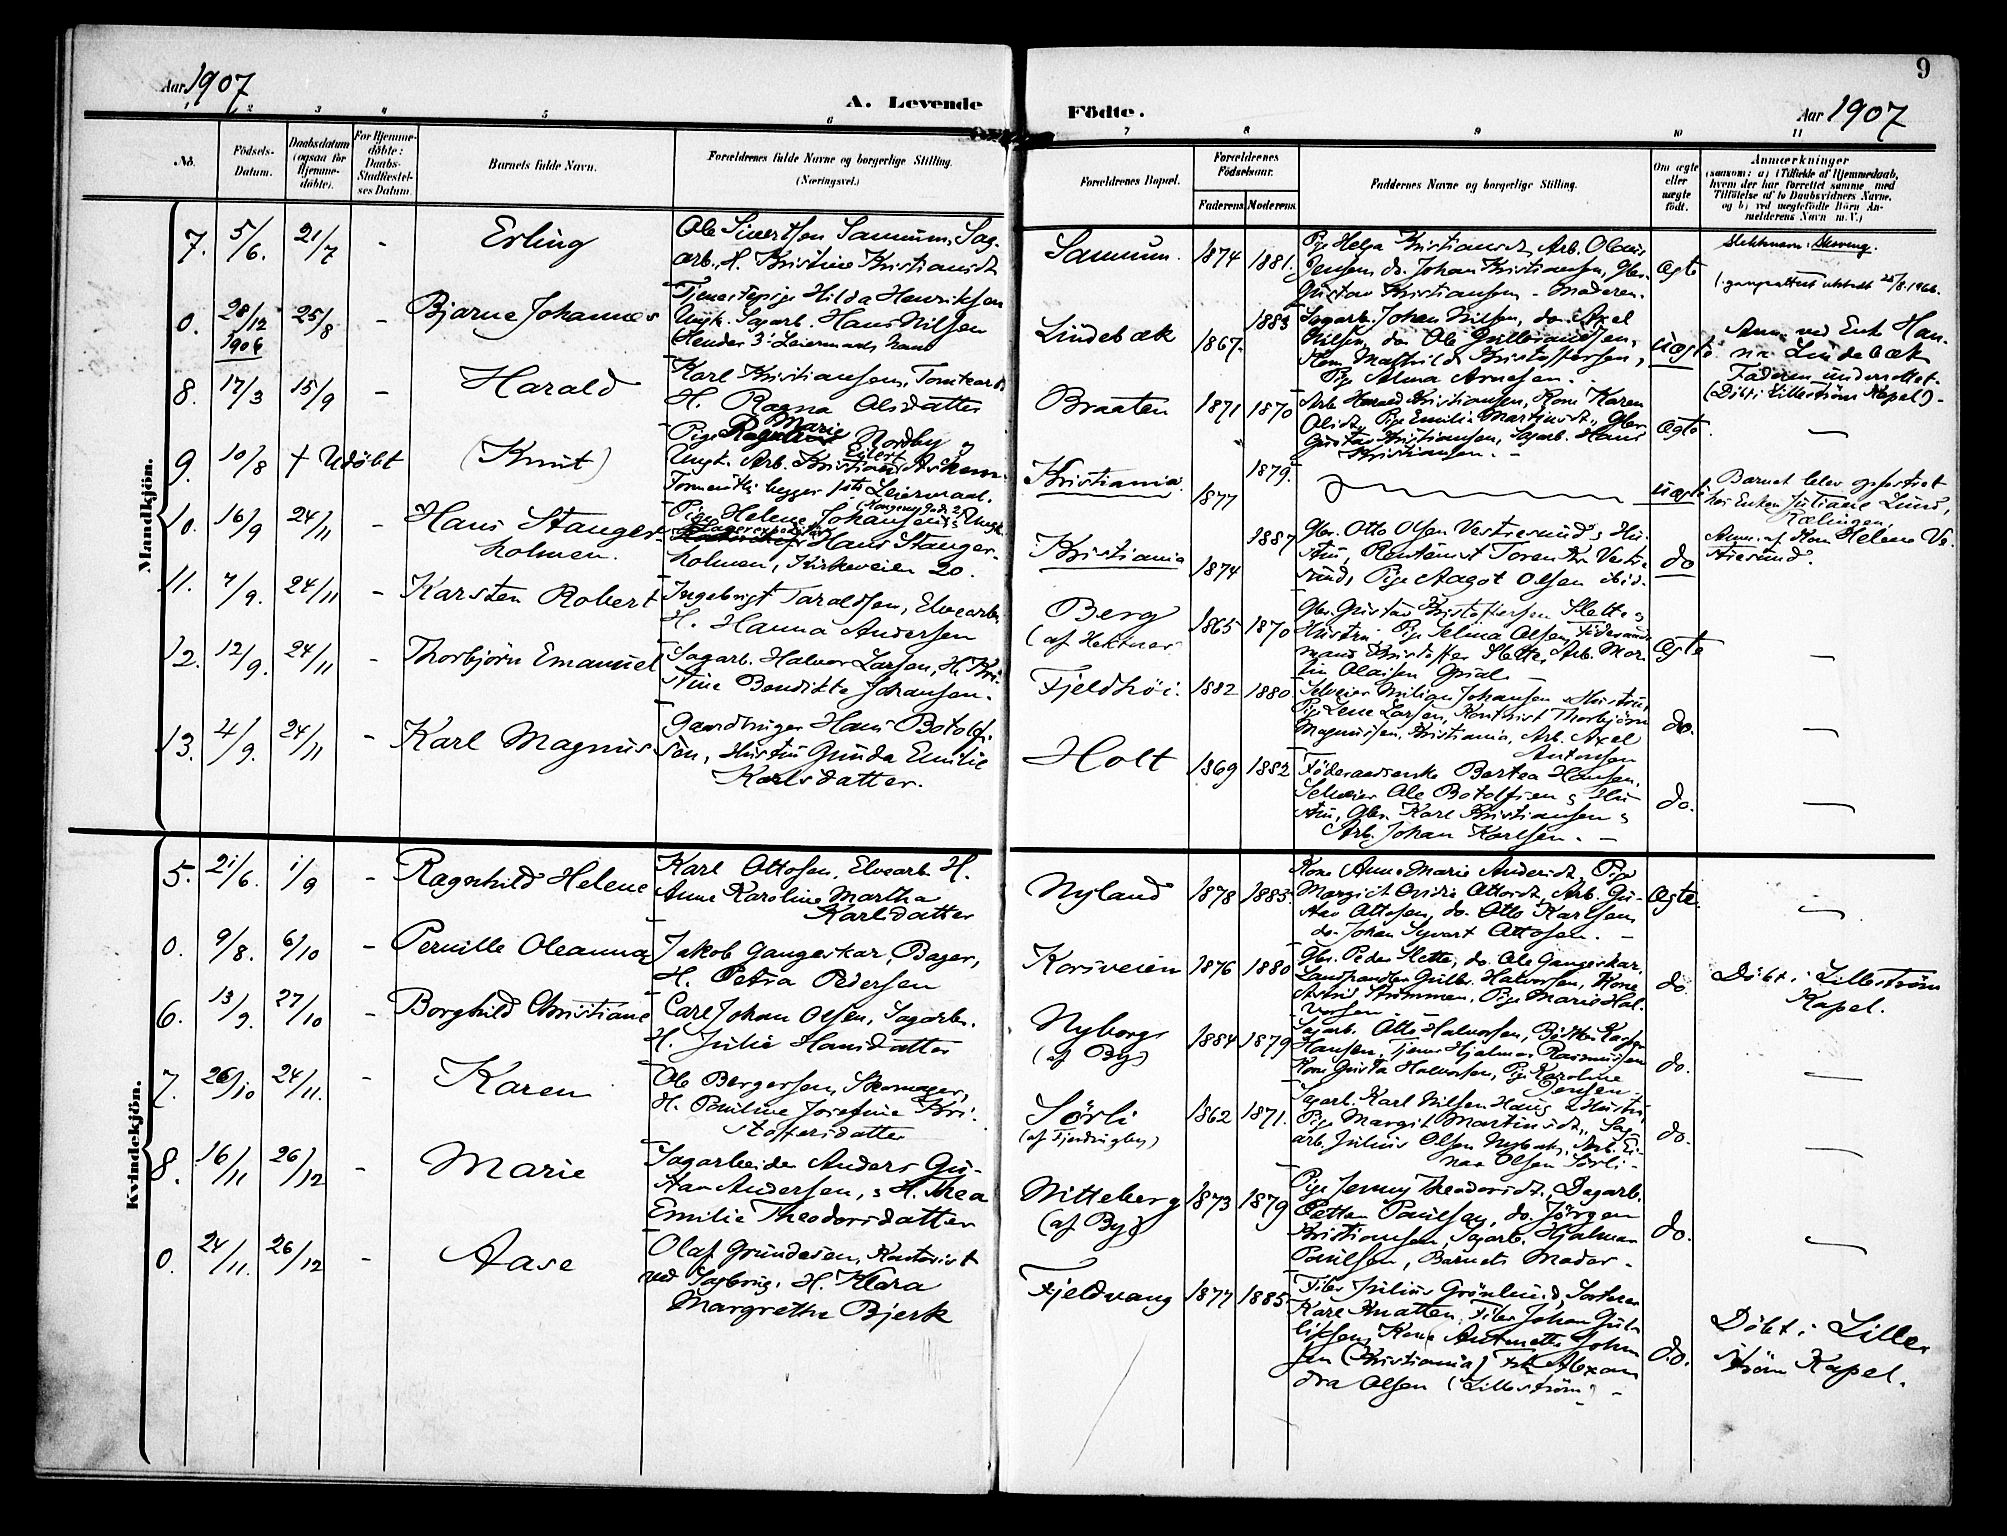 9
Aar 1907
A. Levende Födte.
Aar 1907
1 2 3 4 5 6 7 8 9 10 11
No.
Födsels-
Datum.
Daabsdatum
(ogsaa for
Hjemme-
døbte).
For Hjemme-
döbte:
Daabs-
Stadfæstel-
ses Datum.
Barnets fulde Navn.
Forældrenes fulde Navne og borgerlige Stilling.
(Næringsvei.)
Forældrenes Bopæl.
Forældrenes
Födselsaar.
Faderens
Moderens
Faddernes Navne og borgerlige Stilling.
Om ægte
eller
uægte
födt.
Anmærkninger
(saasom: a) i Tilfælde af Hjemmedaab,
hvem der har forrettet samme med
Tilföielse af to Daabsvidners Navne,
og b) ved uægtefödte Börn An-
melderens Navn m. V.)
Mandkjön.
7. 5/6. 21/7 - Erling
Ole Sivertsen Sannum, Sag-
arb., H. Kristine Kristiansdt.
Sannum. 1874 1881.
Pige Helga Kristiansdt, Arb. Olaus
Jensen, do. Johan Kristiansen, Gbr.
Gustav Kristiansen - Moderen.
ægte
0. 28/12 1906 25/8 - Bjarne Johannes
Tjenestepige Hilda Henriksen
Ungk. Sagarb. Hans Nilsen
(Hendes 3. Leiermaal, hans
Lindebæk 1867. 1883
Sagarb. Johan Nilsen, do Axel
Nilsen, do Ole Gulbrandsen,
Kone Mathilde Kristoffersen,
Pige Alma Arnesen. -
uægte
Anm. ved Enke Han-
na Lindebæk
Faderen underrettet.
(Döbt i Lilleström Kapel). -
8. 17/3 15/9 - Harald
Karl Kristiansen, Tomtearb.
H. Ragna Olsdatter
Braaten 1871 1870
Arb. Harald Kristiansen, Kone Karen
Olsdt, Pige Emilie Martinsdt., Gbr.
Gustav Kristiansen, Sagarb. Hans
Kristiansen. -
ægte.
9. 10/8 † Udöbt (Knut)
Pige Marie Nordby og
Ungk. Arb. Kristian Eilert
begges 1ste Leiermaal.
Kristiania. 1877 1879.
uægte
Barnet blev opfostret
hos Enken Juliane Lund,
Rælingen.
10. 16/9 24/11 - Hans Stanger-
holmen.
Pige Helene Johansen, Ungk.
Hans Stanger-
holmen, Kirkeveien 20.
Kristiania 1874 1887
Gbr. Otto Olsen Vestresund, Hu-
stru, Rentenist Toren Kr. Vestre
sund, Pige Aagot Olsen ibid.
do
Anm. af Kone Helene Ve-
stresund.
11. 7/9. 24/11 - Karsten Robert
Ingebrigt Taraldsen, Elvearb.
H. Hanna Andersen
Berg
(af Hektner 1865 1870
Gbr. Gustav Kristoffersen Slette og
Hustru, Pige Selma Olsen, Föderaads
mand Kristoffer Slette, Arb. Mar-
tin Olaisen
ægte
12. 12/9. 24/11 - Thorbjörn Emanuel
Sagarb. Halvor Larsen, H. Kri-
stine Bendikte Johansen.
Fjeldhöi. 1882 1880.
Sveiser Milian Johansen, Hustru,
Pige Lene Larsen, Kontorist Thorbjörn
Magnussen, Kristiania, Arb. Axel
Antonsen
do.
13. 4/9. 24/11 - Karl Magnus
Gaardbruger Hans Botolf-
sen, Hustru Gunda Emilie
Karlsdatter.
Holt 1869 1882
Föderaadsenke Bertea Hansen,
Sveiser Ole Botolfsen & Hu-
stru, Gbr. Karl Kristiansen &
Arb. Johan Karlsen. -
do.
Kvindekjön.
5. 21/6. 1/9 - Ragnhild Helene
Karl Ottosen, Elvearb. H.
Anne Karoline Martha
Karlsdatter
Nyland 1878 1885.
Kone Anne Marie Andersdt, Pige
Margit Ovidia Ottosdt, Arb. Gu-
stav Ottosen, do. Otto Karlsen,
do. Johan Syvert Ottosen. -
ægte.
0. 9/8. 6/10 - Pernille Oleanna
Jakob Gangeskar, Bager,
H. Petra Pedersen
Korsveien 1876 1880
Gbr. Peder Slette, do. Ole Gangeskar,
Landhandler Gulbr. Halvorsen, Kone
Astrid Strömmen, Pige Marie Hal-
vorsen
do.
Döbt i Lilleström
Kapel.
6. 13/9. 27/10 - Borghild Christiane
Carl Johan Olsen, Sagarb.
H. Julie Hansdatter
Nyborg
(af By) 1884 1879
Sagarb. Otto Halvorsen, Bödker Kasper
Hansen, Tjener Hjalmar Rasmussen
Kone Gusta Halvorsen, Pige Karoline
Jensen.
do.
7. 26/10 24/11. - Karen
Ole Bergersen, Skomager,
H. Pauline Josefine Kri-
stoffersdatter
Sörli
(af Fjerdingby) 1862 1871.
Sagarb. Karl Nilsen Haug & Hustru,
Pige Margit Martinsdt., Sag-
arb. Julius Olsen Nybak, Arb. Ei-
nar Olsen Sörli -
do.
8. 16/11 26/12 - Marie
Sagarbeider Anders Gu-
stav Andersen, & H. Thea
Emilie Theodorsdatter
Nitteberg
(af By) 1873 1879
Pige Jenny Theodorsdt., Dagarb.
Petter Paulsen, do. Jörgen
Kristiansen, Sagarb. Hjalmar
Paulsen, Barnets Moder -
do.
0. 24/11. 26/12 - Aase
Olaf Gundesen, Kontorist
ved Sagbrug, H. Klara
Margrethe Bjerk
Fjeldvang 1877 1885
Filer Julius Grönlund, Sorterer
Karl Knatten, Filer Johan Gul-
liksen, Kone Antonette John-
sen (Kristiania) Frk. Alexan
dra Olsen (Lilleström) -
do.
Döbt i Lille-
ström Kapel.